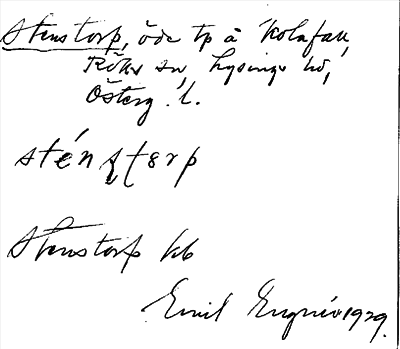 Stenstorp, öde tp å Kolafall,
Röks sn, Lysings hd,
Österg. l.
sténstɛrp
Stenstorp kb
Emil Engnér 1929.